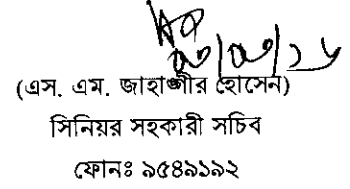 (এস. এম. জাহাঙ্গীর হোসেন)
সিনিয়র সহকারী সচিব
ফোনঃ ৯৫৪৯১৯২